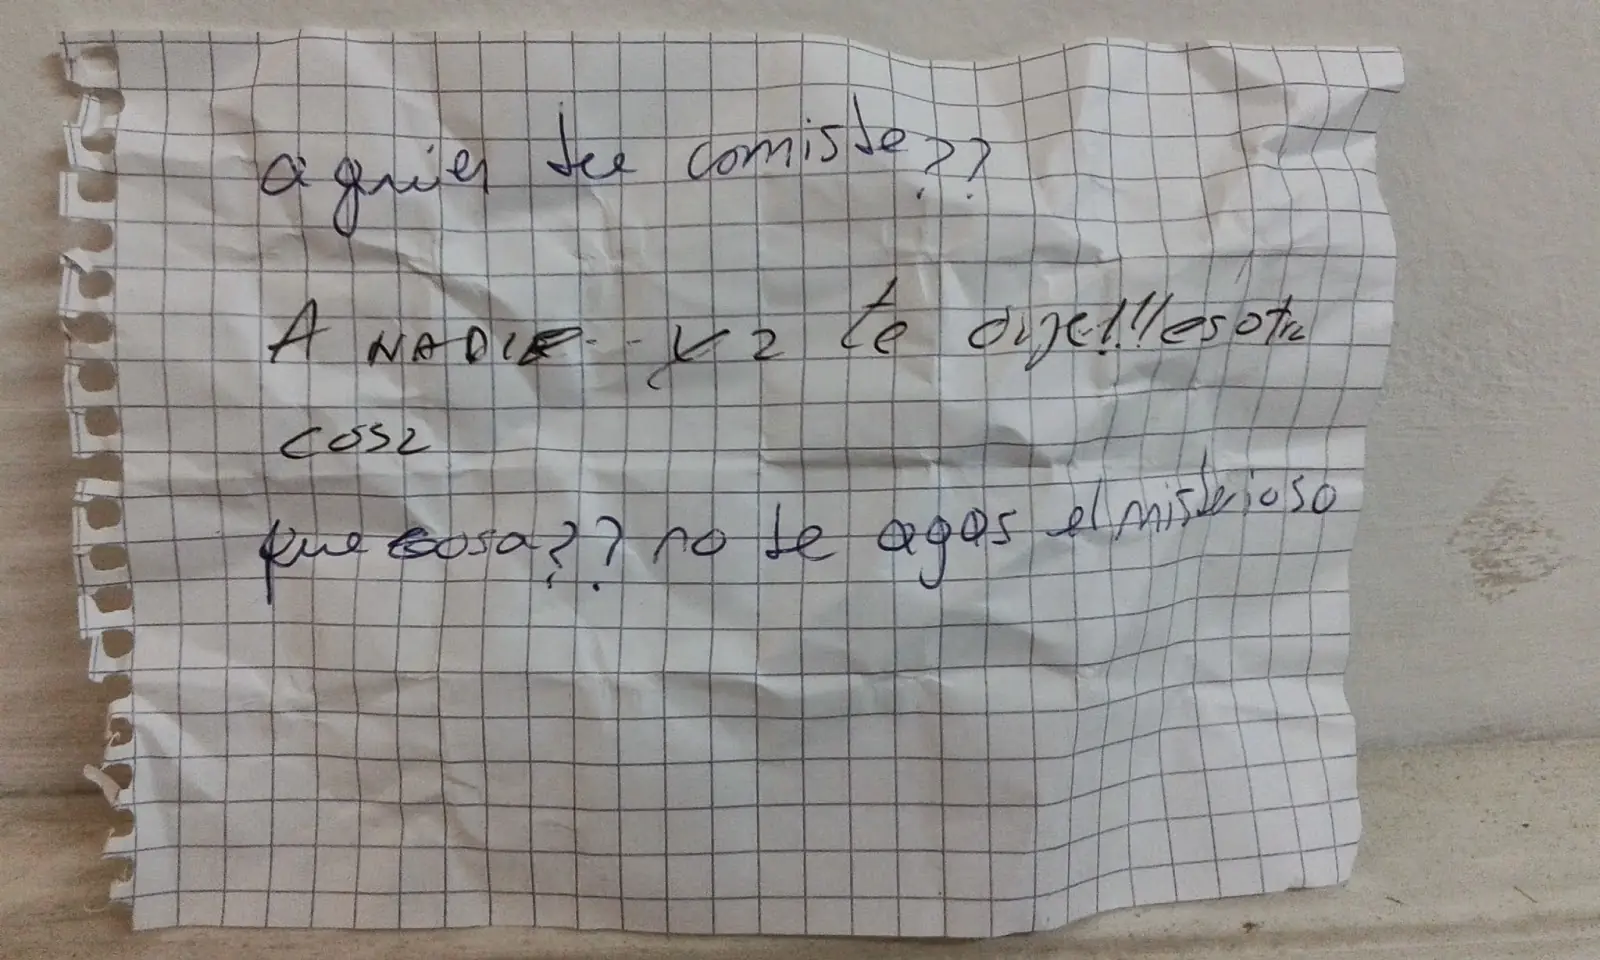 a quien te comiste??
A NADIE.. ya te dije!!! es otra
cosa
que cosa?? no te agas el misterioso